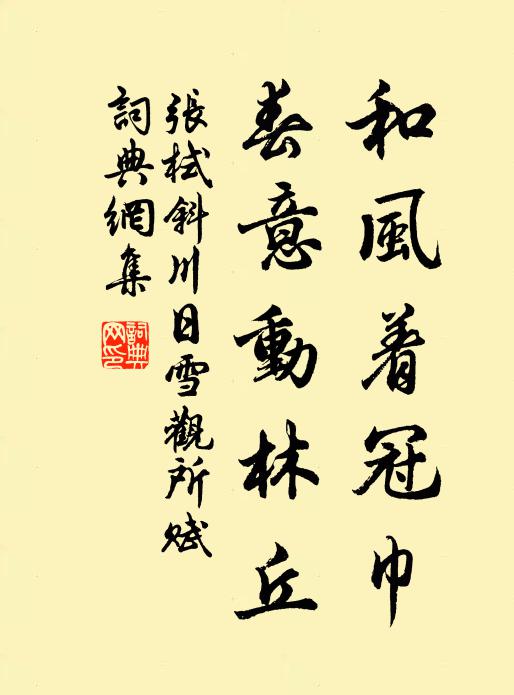 和風着冠巾
春意動林丘
張栻斜川日雪觀所賦
詞典網集
詞典網印